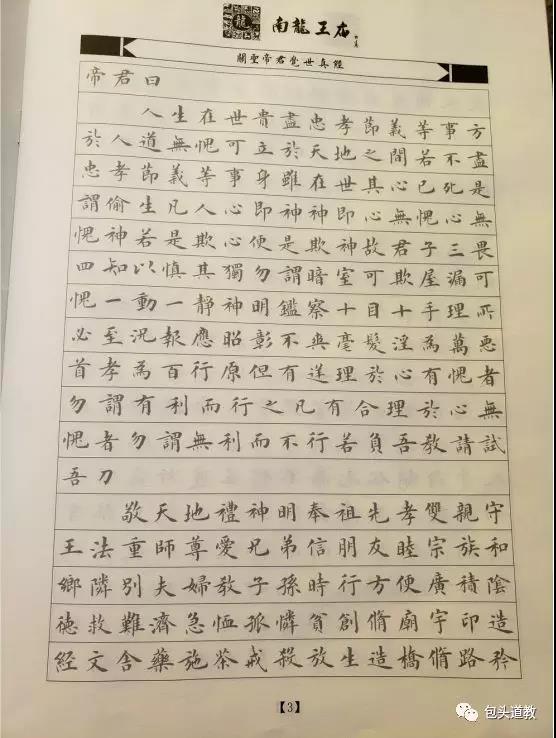 龍
南龍王庙
關聖帝君覺世真經
帝君曰
人生在世貴盡忠孝節義等事方
於人道無愧可立於天地之間若不盡
忠孝節義等事身雖在世其心已死是
謂偷生凡人心即神神即心無愧心無
愧神若是欺心便是欺神故君子三畏
四知以慎其獨勿謂暗室可欺屋漏可
愧一動一靜神明鑑察十目十手理所
必至況報應昭彰不爽毫髮淫為萬惡
首孝為百行原但有逆理於心有愧者
勿謂有利而行之凡有合理於心無
愧者勿謂無利而不行若負吾教請試
吾刀
敬天地禮神明奉祖先孝雙親守
王法重師尊愛兄弟信朋友睦宗族和
鄉隣別夫婦教子孫時行方便廣積陰
德救難濟急恤孤憐貧創脩廟宇印造
經文舍藥施茶戒殺放生造橋脩路矜
【3】
包头道教